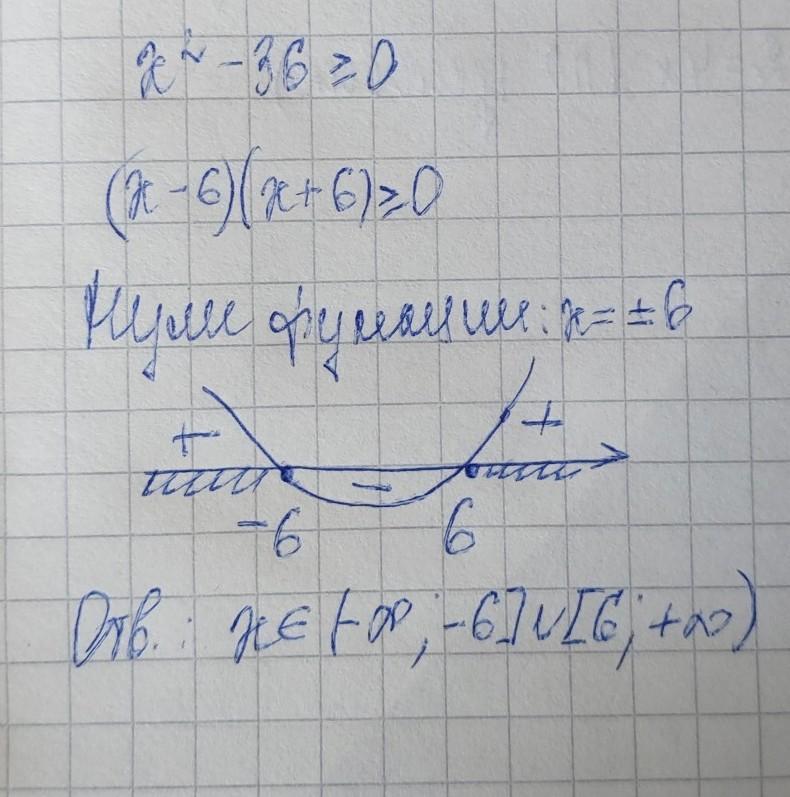 x² - 36 ≥ 0
(x - 6)(x + 6) ≥ 0
Нули функции: x = ± 6
+ - +
-6 6
Отв.: x ∈ (-∞; -6] ∪ [6; +∞)